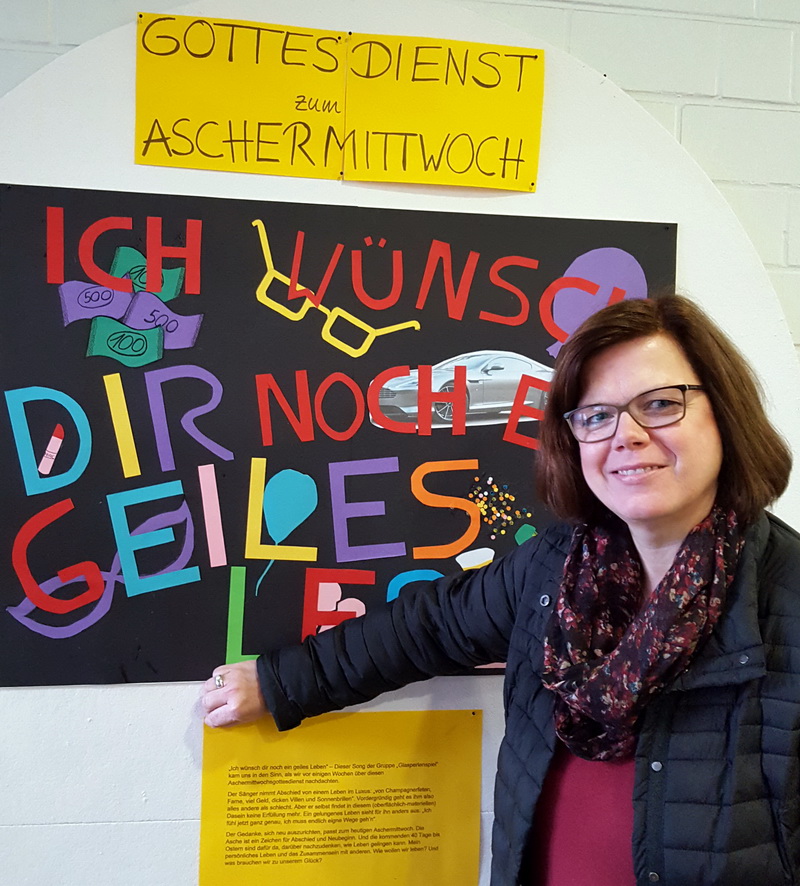 GOTTESDIENST
zum
ASCHERMITTWOCH
ICH WÜNSC
100
500
500
100
DIR NOCH E
GEILES
LE
„Ich wünsch dir noch ein geiles Leben“ – Dieser Song der Gruppe „Glasperlenspiel“
kam uns in den Sinn, als wir vor einigen Wochen über diesen
Aschermittwochsgottesdienst nachdachten.
Der Sänger nimmt Abschied von einem Leben im Luxus: „von Champagnerfeten,
Fame, viel Geld, dicken Villen und Sonnenbrillen“. Vordergründig geht es ihm also
alles andere als schlecht. Aber er selbst findet in diesem (oberflächlich-materiellen)
Dasein keine Erfüllung mehr. Ein gelungenes Leben sieht für ihn anders aus: „Ich
fühl jetzt ganz genau, ich muss endlich eigne Wege geh'n“
Der Gedanke, sich neu auszurichten, passt zum heutigen Aschermittwoch. Die
Asche ist ein Zeichen für Abschied und Neubeginn. Und die kommenden 40 Tage bis
Ostern sind dafür da, darüber nachzudenken, wie Leben gelingen kann. Mein
persönliches Leben und das Zusammensein mit anderen. Wie wollen wir leben? Und
was brauchen wir zu unserem Glück?